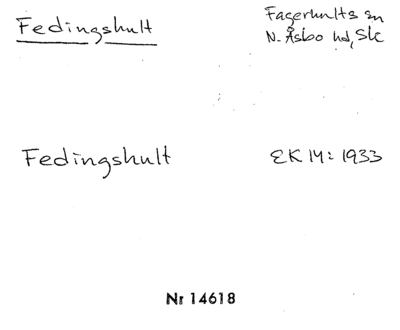 Fedingshult
Fagerhults sn
N. Åsbo hd, Slc
Fedingshult
EK 14: 1933
Nr 14618